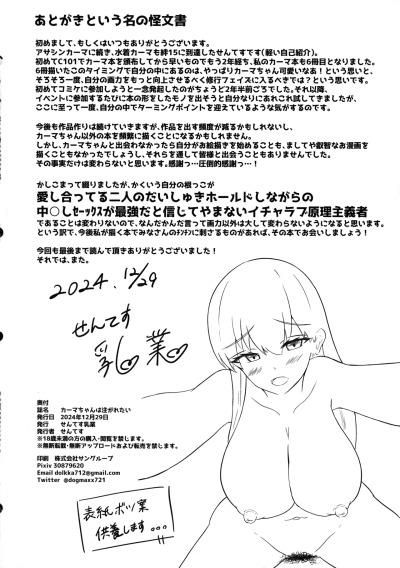 あとがきという名の怪文書
初めまして、もしくはいつもありがとうございます。
アサシンカーマに続き、水着カーマも絆15に到達したせんてすです(軽い自己紹介)。
初めて101でカーマ本を頒布してから早いものでもう2年経ち、私のカーマ本も6冊目となりました。
6冊描いたこのタイミングで自分の中にあるのは、やっぱりカーマちゃん可愛いなあ！という思いと、
そろそろ一度、自分の画力をもっと向上させるべく修行フェイズに入るべきでは？という思いです。
初めてコミケに参加しようと一念発起したのがちょうど2年半前ごろでした。それ以降、
イベントに参加するたびに本の形をしたモノを出そうと自分なりにあれこれ試してきましたが、
ここに至って一度、自分の中でターニングポイントを迎えているような気がするのです。
今後も作品作りは続けていきますが、作品を出す頻度が減るかもしれないし、
カーマちゃん以外の本を頻繁に描くことになるかもしれません。
しかし、カーマちゃんと出会わなかったら自分がお絵描きを始めることも、まして叡智なお漫画を
描くこともなかったでしょうし、それらを通して皆様と出会うこともありませんでした。
その事実だけは変わらないと思います。感謝っ…圧倒的！感謝っ…！
かしこまって綴りましたが、かくいう自分の根っこが
愛し合ってる二人のだいしゅきホールドしながらの
中○しｾｯｸｽが最強だと信じてやまないイチャラブ原理主義者
であることは変わりないので、なんだかんだ言って画力以外は大して変わらないようになると思います。
という訳で、今後私が描く本でみなさんのﾁﾝﾁﾝに刺さるものがあれば、その本でお会いしましょう！
今回も最後まで読んで頂きありがとうございました！
それでは、また。
2024.12/29
せんてす
乳業
奥付
誌名 カーマちゃんは注がれたい
発行日 2024年12月29日
発行 せんてす乳業
発行者 せんてす
※18歳未満の方の購入・閲覧を禁じます。
※無断転載・無断アップロードおよび転売を禁じます。
印刷 株式会社サングループ
Pixiv 30879620
Email dolkka712@gmail.com
Twitter @dogmaxx721
表紙ボツ案
供養します…